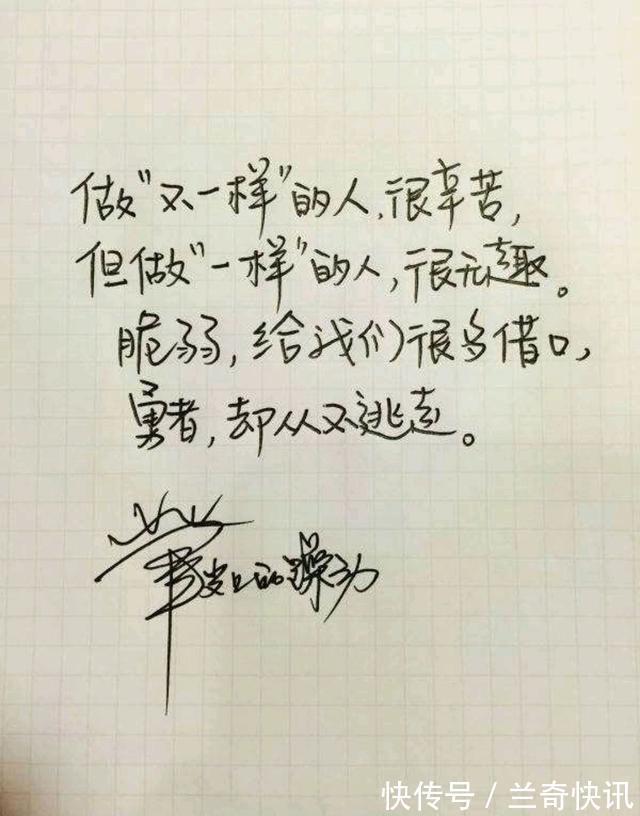 做"不一样"的人,很辛苦,
但做"一样"的人,很无趣。
脆弱,给我们很多借口,
勇者,却从不逃走。
笔尖上的躁动
快传号/兰奇快讯